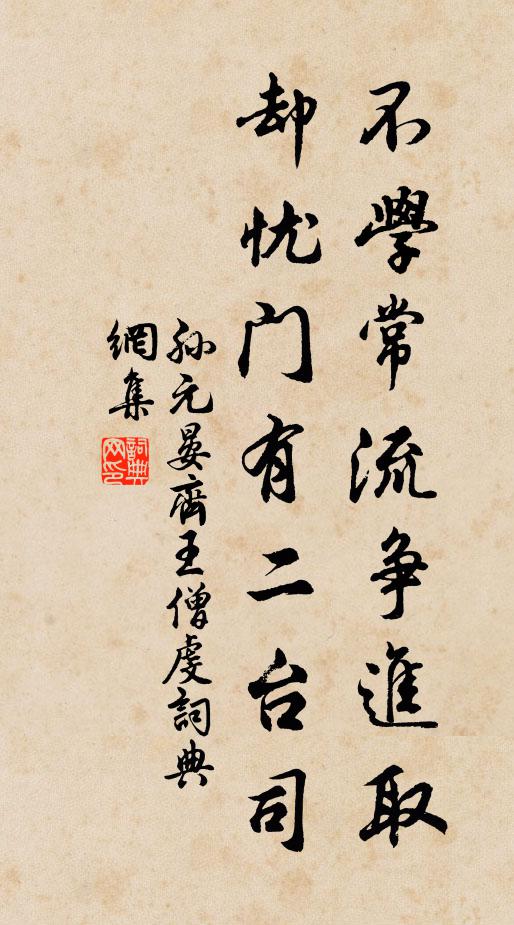 不學常流争進取
却忧门有二台司
孙元晏齊王僧虔詞典
網集
詞典网印